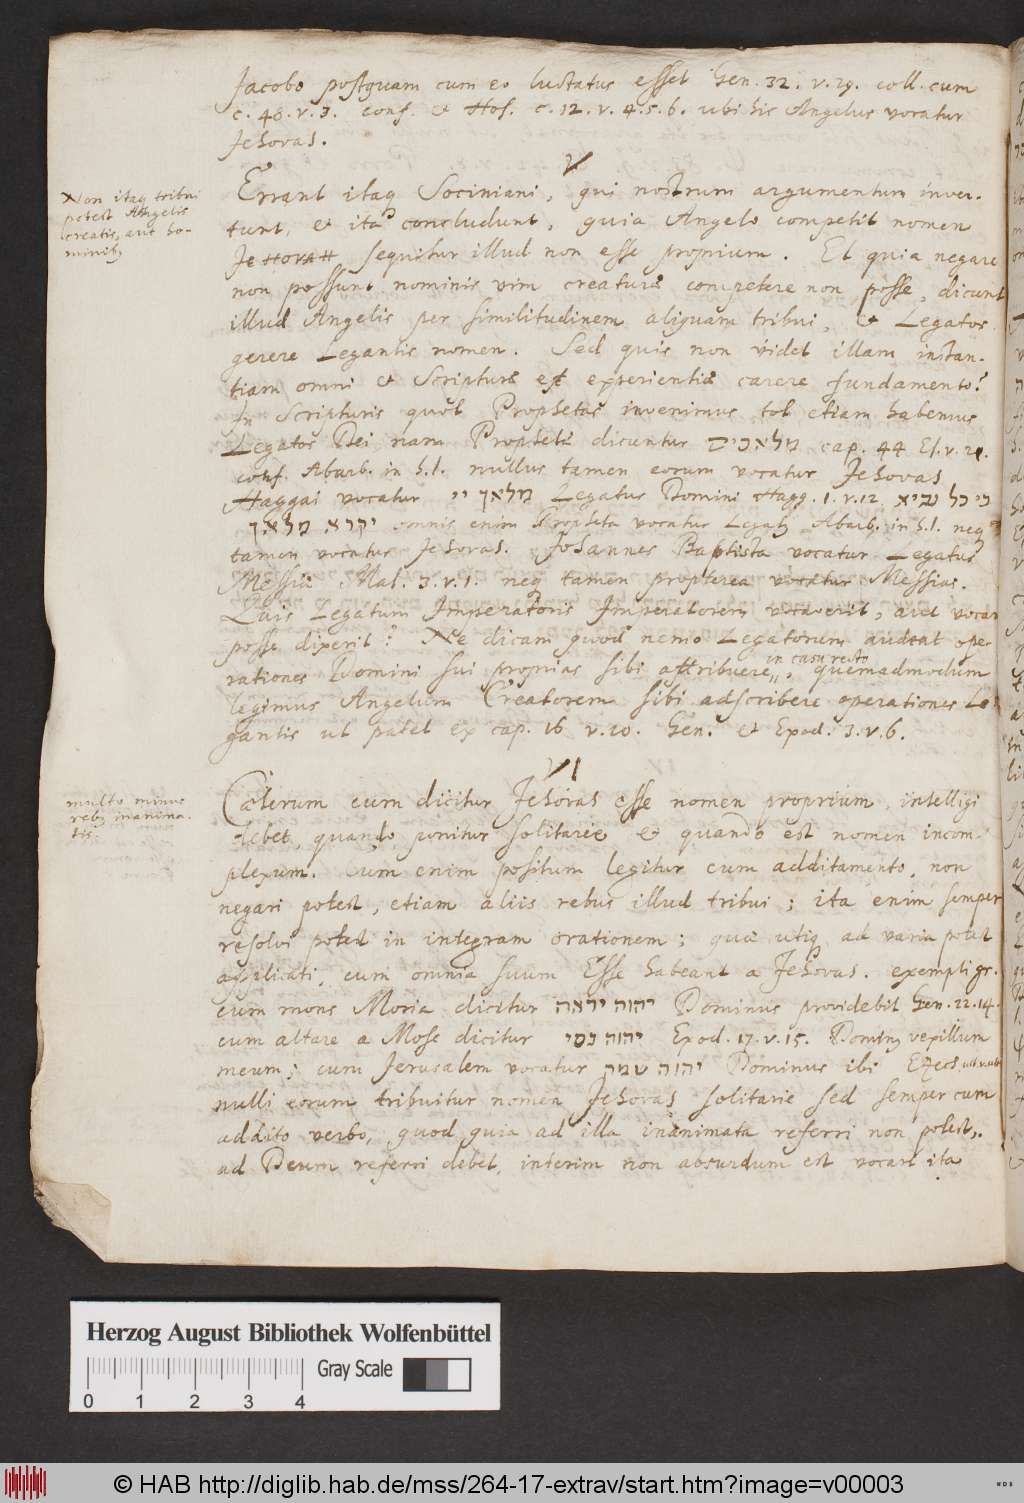 Jacobo postquam cum eo luctatus esset Gen. 32. v. 29. coll. cum
c. 48. v. 3. conf. & Hos. c. 12. v. 4. 5. 6. ubi hic Angelus vocatur
Jehovas.
V
Non itaq tribui
potest Angelis
creatis, aut ho-
minib,
Errant itaq Sociniani, qui nostrum argumentum inver-
tunt, & ita concludunt, quia Angelo competit nomen
JeHovaH, sequitur illud non esse proprium. Et quia negare
non possunt nominis vim creaturæ competere non posse, dicunt
illud Angelis per similitudinem aliquam tribui, & Legatos
gerere Legantis nomen. Sed quis non videt illam instan-
tiam omni & Scripturæ et experientiæ carere fundamento?
In Scripturis quot Prophetas invenimus tot etiam habemus
Legatos Dei nam Prophetæ dicuntur מלאכים cap. 44 Es. v.
conf. Abarb. in h. l. nullus tamen eorum vocatur Jehovas
Haggai vocatur מלאך יי Legatus Domini Hagg. 1. v. 12. כי כל נביא
יקרא מלאך omnis enim Propheta vocatur Legat, Abarb. in h. l. neq
tamen vocatur Jehovas. Johannes Baptista vocatur Legatus
Messiæ Mal. 3. v. 1. neq tamen propterea vocatur Messias.
Quis Legatum Imperatoris Imperatorem vocaverit, aut vocari
posse dixerit? Ne dicam quod nemo Legatorum audeat ope-
rationes Domini sui proprias sibi attribuere in casu recto, quemadmodum
legimus Angelum Creatorem sibi adscribere operationes Le-
gantis ut patet ex cap. 16 v. 10. Gen. & Exod. 3. v. 6.
VI
multo minus
reb, inanima-
tis.
Cæterum cum dicitur Jehovas esse nomen proprium, intelligi
debet, quando ponitur solitarie & quando est nomen incom-
plexum. Cum enim positum legitur cum additamento, non
negari potest, etiam aliis rebus illud tribui; ita enim semper
resolvi potest in integram orationem; quæ utiq ad varia potest
applicari, cum omnia suum Esse habeant a Jehovas. exempli gr.
cum mons Moria dicitur יהוה יראה Dominus providebit Gen. 22. 14.
cum altare a Mose dicitur יהוה נסי Exod. 17. v. 15. Domin, vexillum
meum; cum Jerusalem vocatur יהוה שמה Dominus ibi Ezech.
nulli eorum tribuitur nomen Jehovas solitarie sed semper cum
addito verbo, quod quia ad illa inanimata referri non potest,
ad Deum referri debet, interim non absurdum est vocare ita
Herzog August Bibliothek Wolfenbüttel
Gray Scale
0 1 2 3 4
© HAB http://diglib.hab.de/mss/264-17-extrav/start.htm?image=v00003